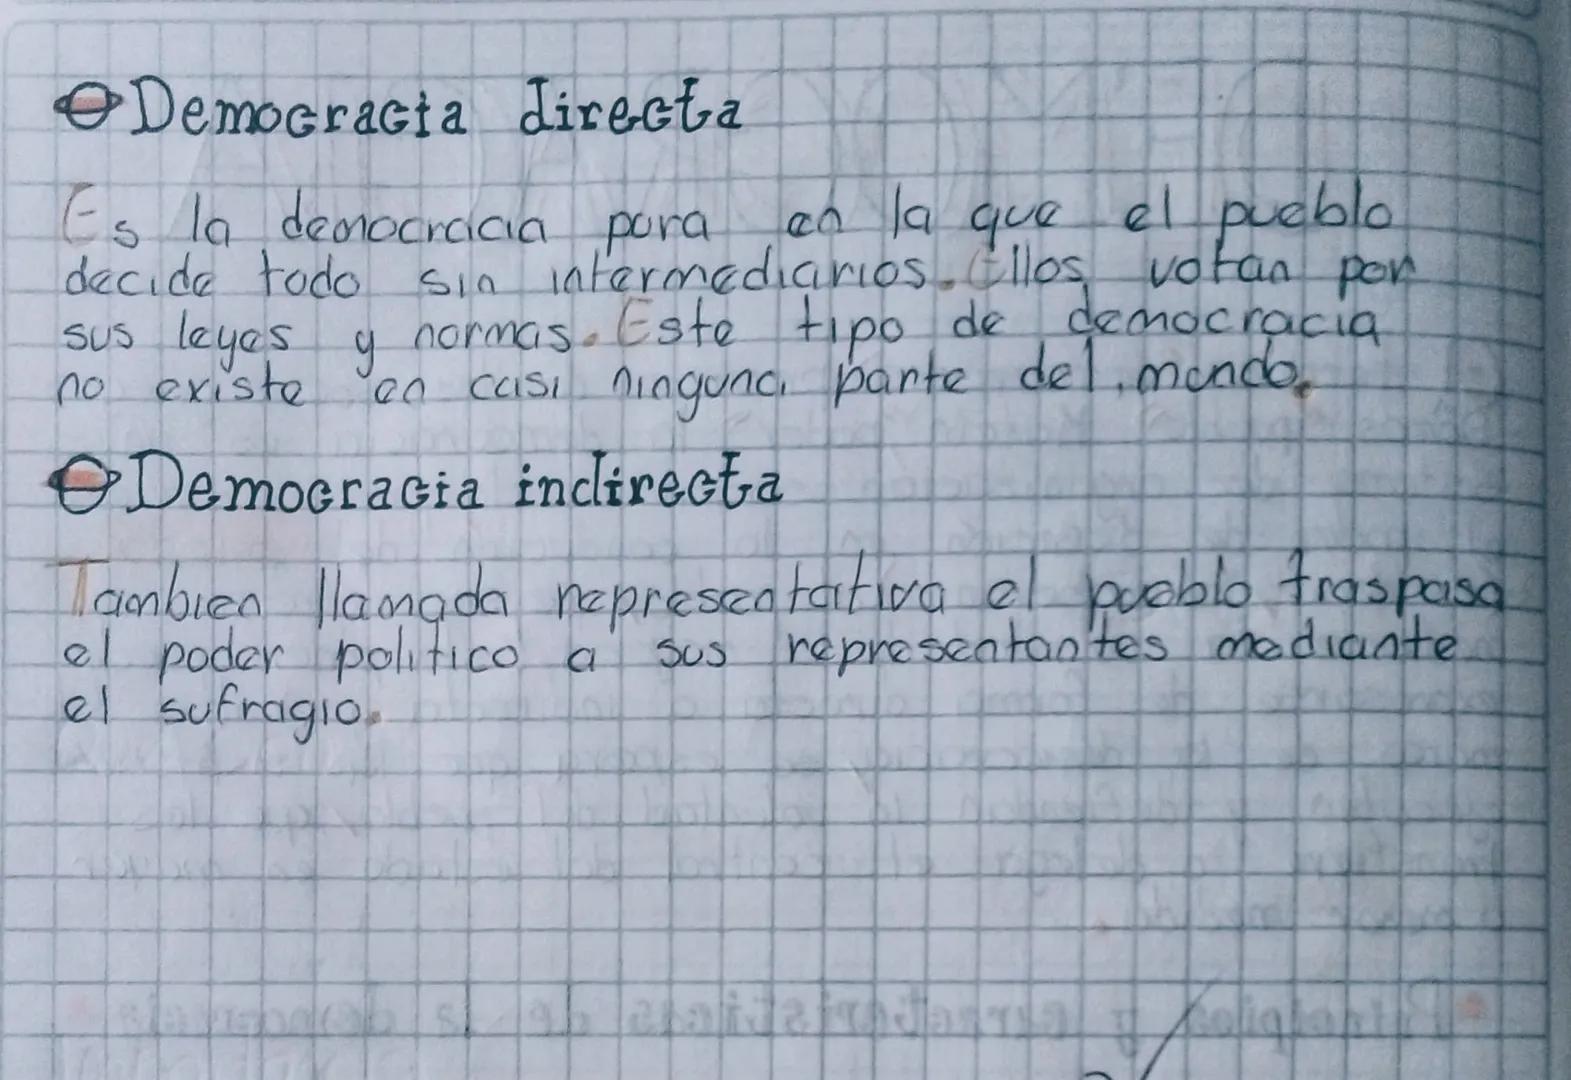 Democracia directa
Es la democracia pura en la que el pueblo
decide todo sin intermediarios. Ellos votan por
sus leyes y normas. Este tipo de democracia
no existe en casi ninguna parte del mundo.
Democracia indirecta
Tambien llamada representativa el pueblo traspasa
el poder politico a sus representantes mediante
el sufragio.